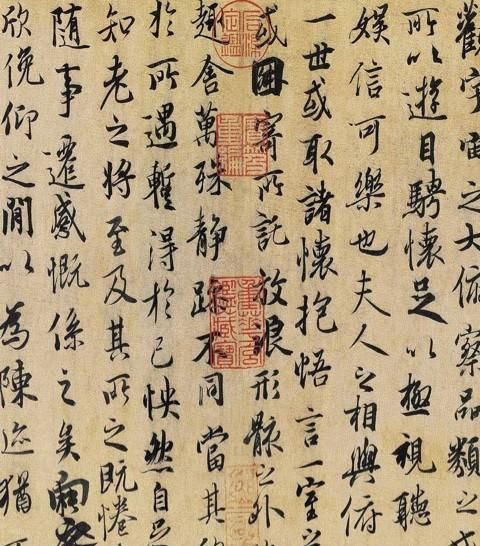 觀宇宙之大俯察品類之盛
所以遊目騁懷足以極視聽
娛信可樂也夫人之相與俯
一世或取諸懷抱悟言一室之
或因寄所託放浪形骸之外
趣舍萬殊静躁不同當其欣
於所遇暫得於己怏然自足
知老之將至及其所之既惓
隨事遷感慨係之矣向之
欣俛仰之閒以為陳迹猶不